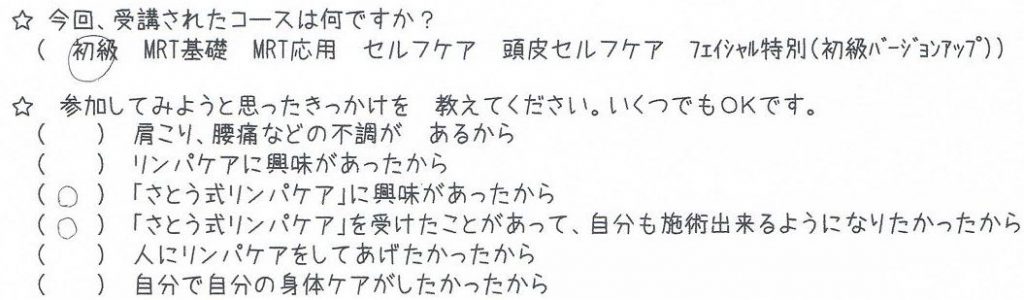 ☆ 今回、受講されたコースは何ですか？
( 初級 MRT基礎 MRT応用 セルフケア 頭皮セルフケア ﾌｪｲｼｬﾙ特別(初級ﾊﾞｰｼﾞｮﾝｱｯﾌﾟ))
☆ 参加してみようと思ったきっかけを 教えてください。いくつでもOKです。
( ) 肩こり、腰痛などの不調が あるから
( ) リンパケアに興味があったから
( ○ ) 「さとう式リンパケア」に興味があったから
( ○ ) 「さとう式リンパケア」を受けたことがあって、自分も施術出来るようになりたかったから
( ) 人にリンパケアをしてあげたかったから
( ) 自分で自分の身体ケアがしたかったから